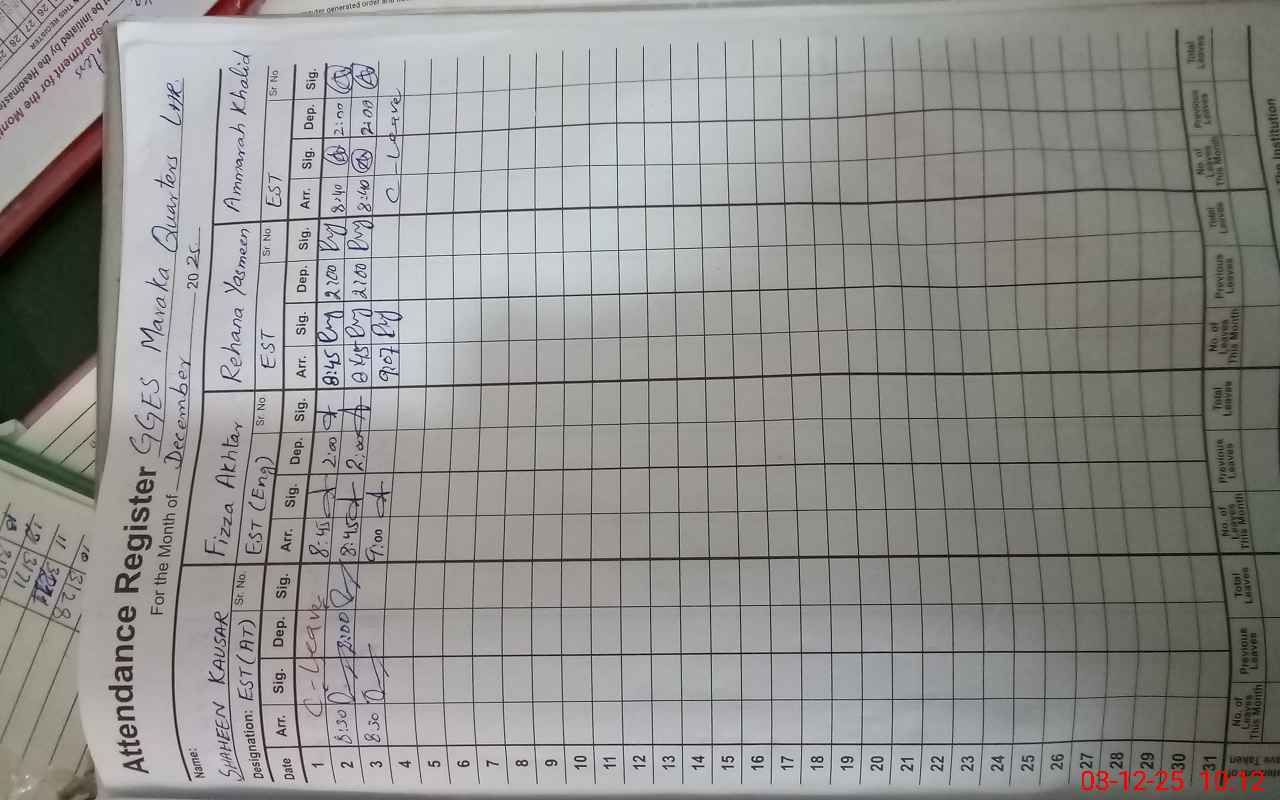 Attendance Register GGES Maraka Quarters LHR.
For the Month of December 2025
Name: SHAHEEN KAUSAR Fizza Akhtar Rehana Yasmeen Ammarah Khalid
Designation: EST (AT) Sr. No. EST (Eng) Sr. No EST Sr No. EST Sr No
Date Arr. Sig. Dep. Sig. Arr. Sig. Dep. Sig. Arr. Sig. Dep. Sig. Arr. Sig. Dep. Sig.
1 C - Leave 8:45 2:00 8:45 2:00 8:40 2:00
2 8:30 2:00 8:45 2:00 8:45 2:00 8:40 2:00
3 8:30 9:00 9:07 C - Leave
4
5
6
7
8
9
10
11
12
13
14
15
16
17
18
19
20
21
22
23
24
25
26
27
28
29
30
31
No. of Leaves This Month Previous Leaves Total Leaves No. of Leaves This Month Previous Leaves Total Leaves No. of Leaves This Month Previous Leaves Total Leaves No. of Leaves This Month Previous Leaves Total Leaves
03-12-25 10:12